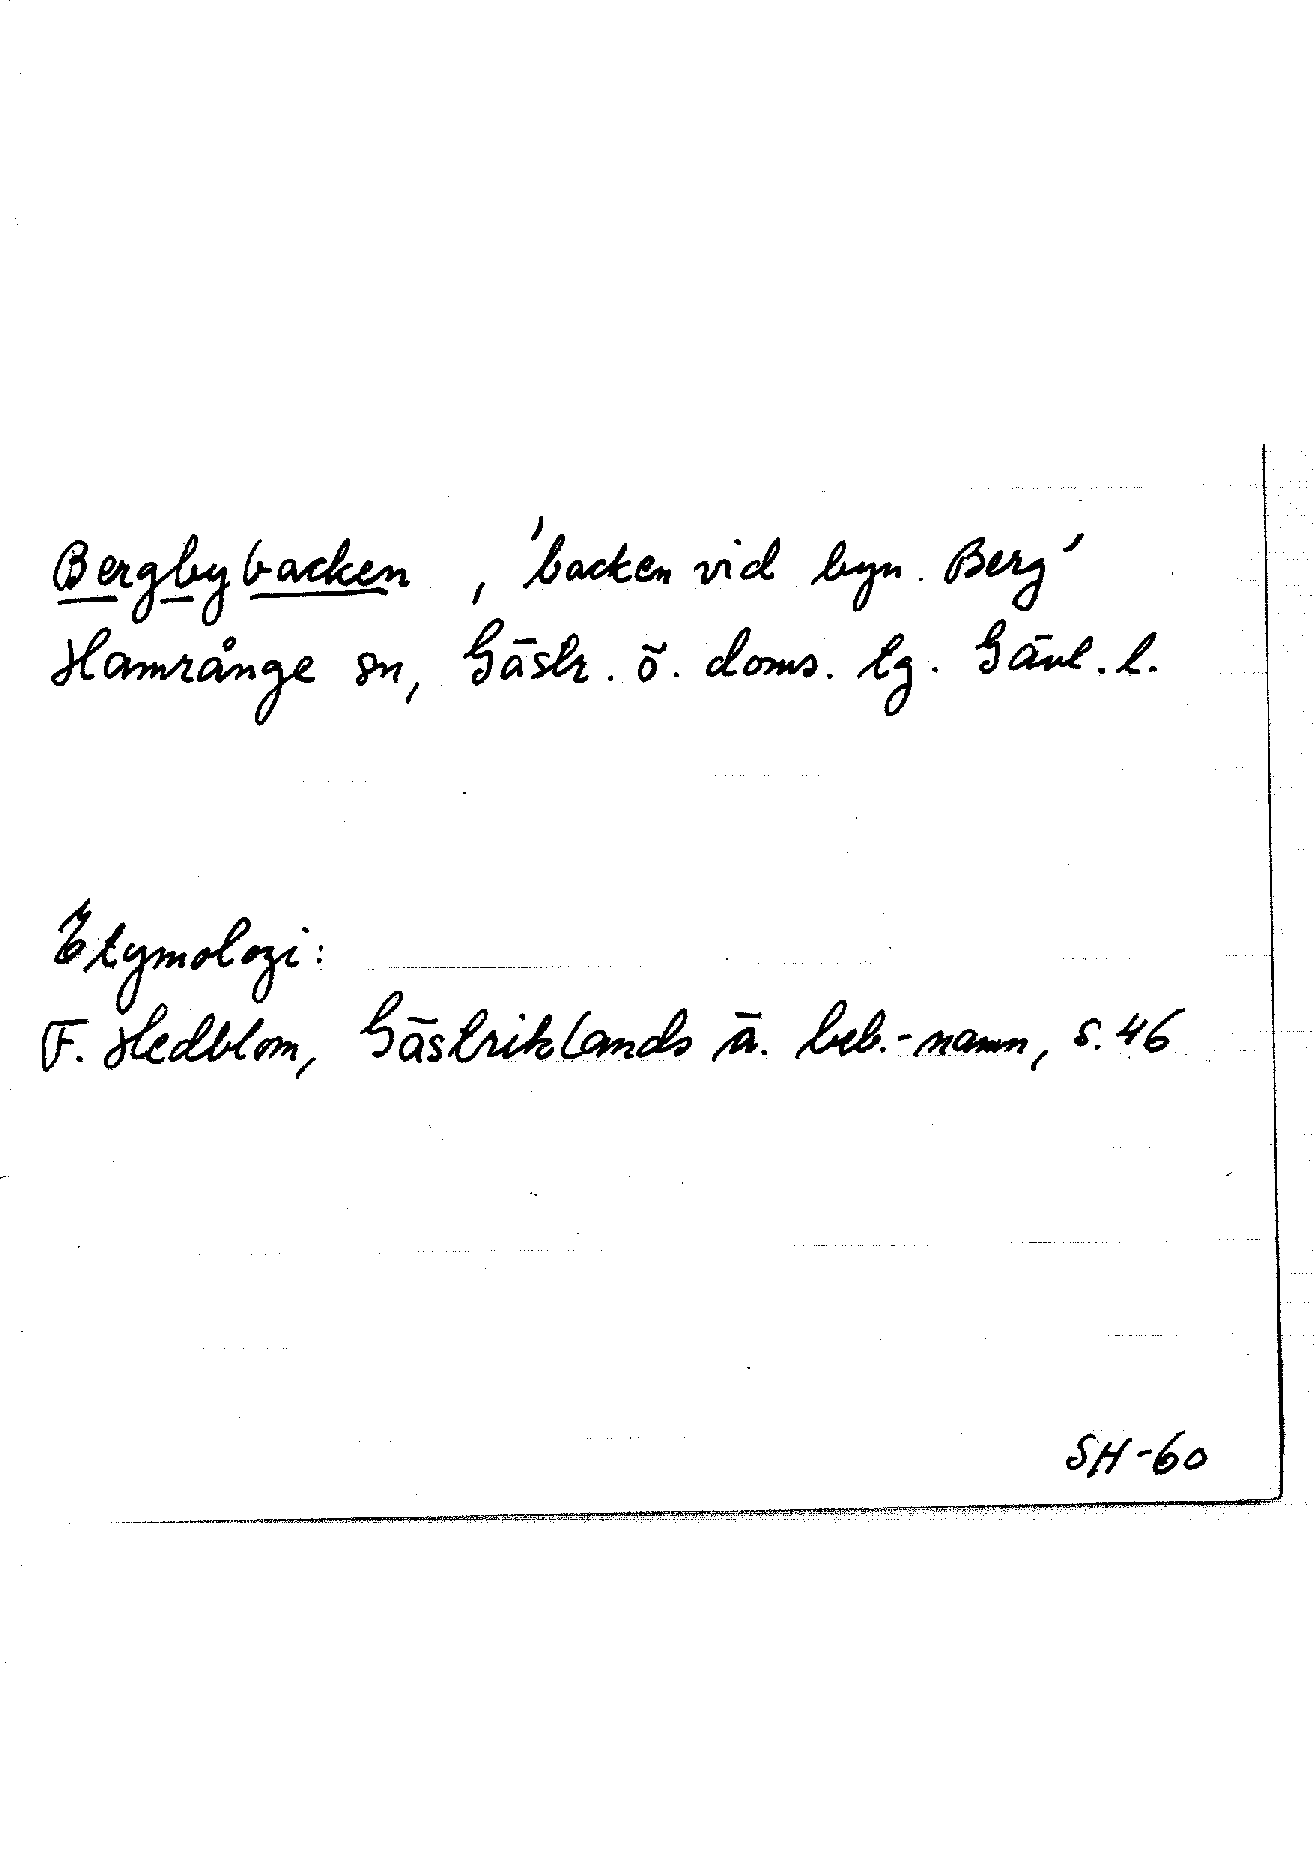 Bergbybacken, 'backen vid byn. Berg'
Hamrånge sn, Gästr. ö. doms. tg. Gävl. l.
Etymologi:
F. Hedblom, Gästriklands ä. beb.-namn, s. 46
SH-60